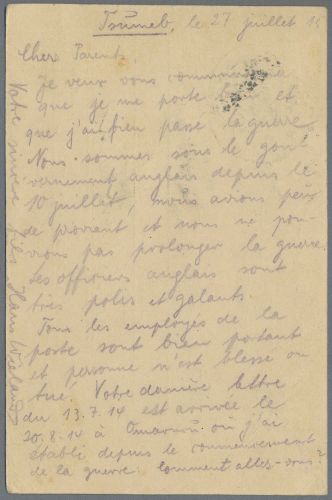 Tsumeb, le 27 juillet 15
Cher Parents
Je veux vous communiquer
que je me porte bien et
que j'ai bien passé la guerre
Nous sommes sous le gou-
vernement anglais depuis le
10 juillet, nous avions peux
de provant et nous ne pou-
vions pas prolonger la guerre.
Les officiers anglais sont
très polis et galants.
Tous les employés de la
poste sont bien portant
et personne n'est blessé ou
tué. Votre dernière lettre
du 13.7.14 est arrivée le
20.8.14 à Omaruru où j'ai
établi depuis le commencement
de la guerre. Comment allez-vous?
Votre fils Hans